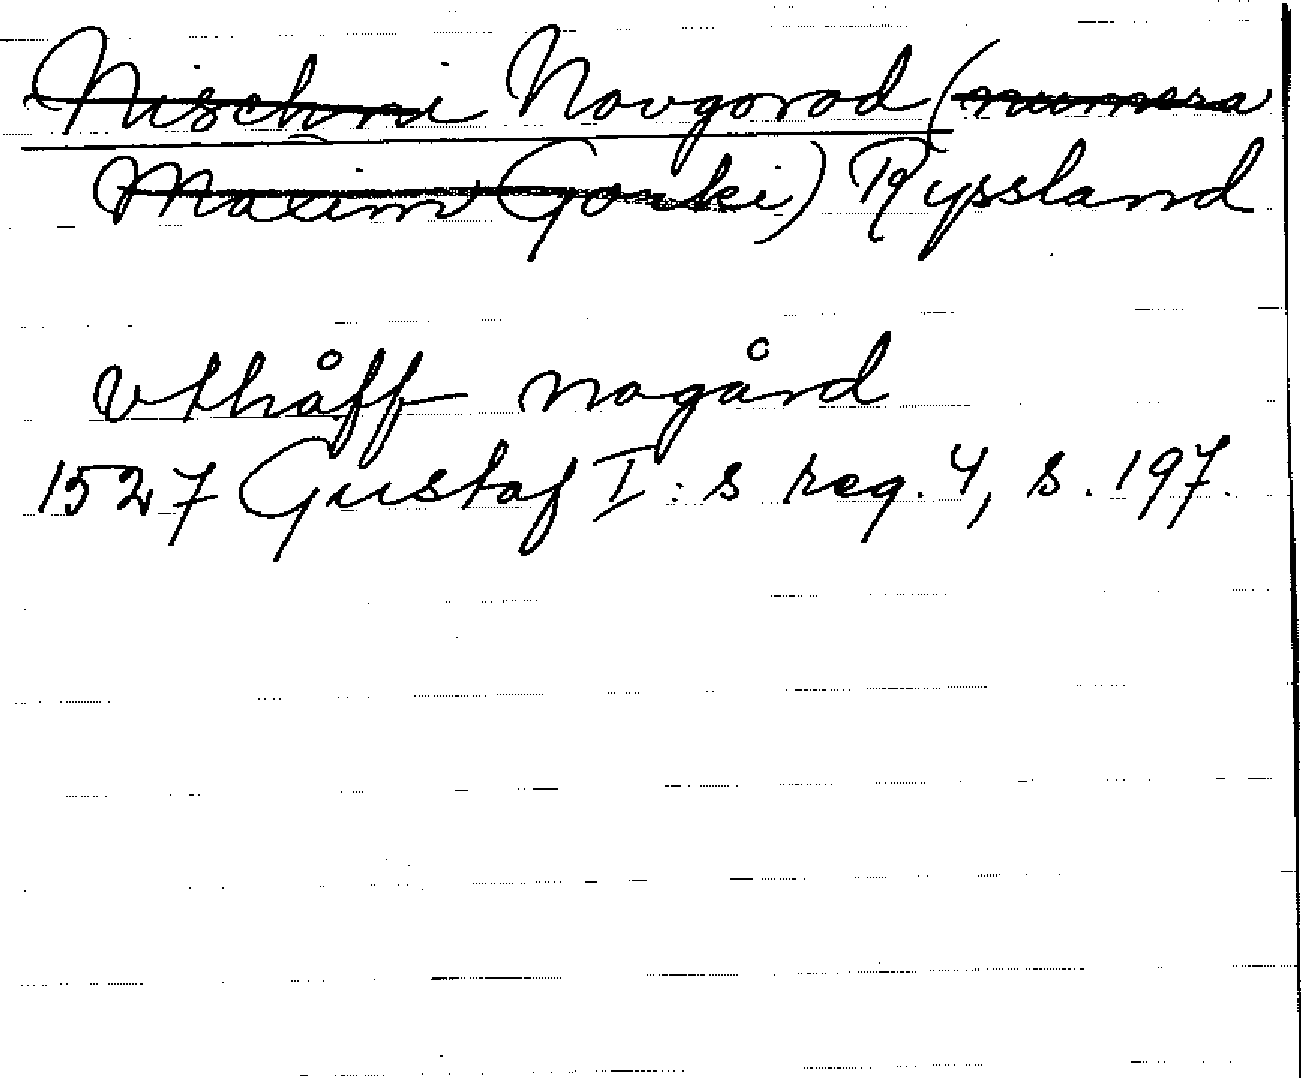 Nischni Novgorod (numera
Maxim Gorki) Ryssland
vthåff nogård
1527 Gustaf I:s reg. 4, s. 197.